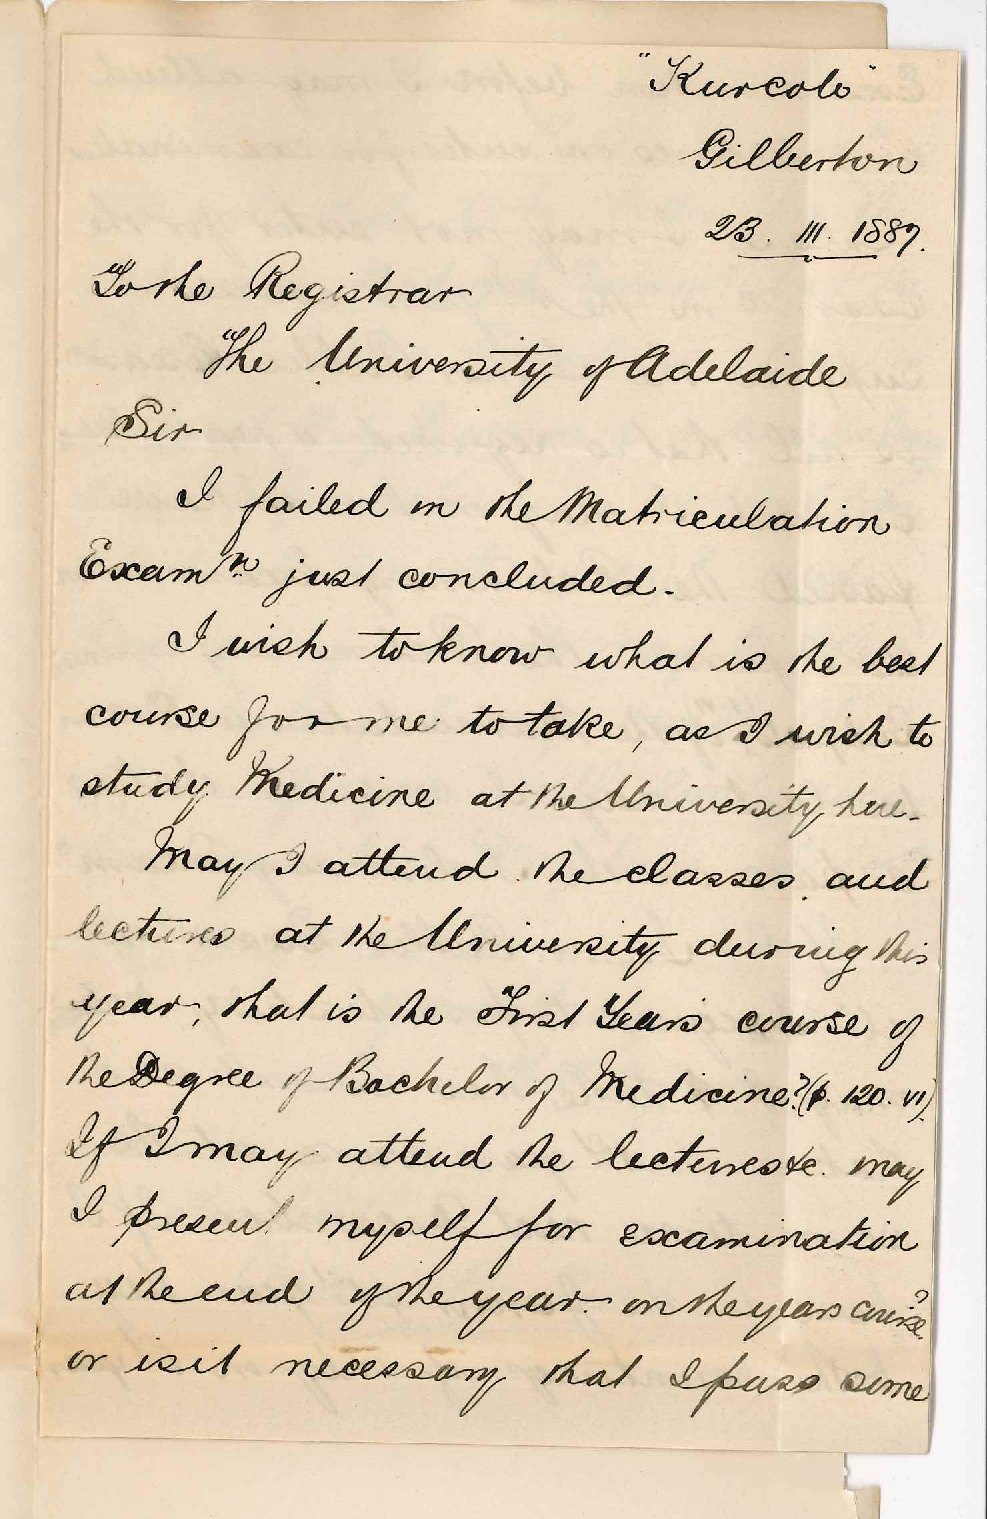 "Kurcolo"
Gilberton
23. III. 1887.
To the Registrar
The University of Adelaide
Sir
I failed in the Matriculation
Examn just concluded.
I wish to know what is the best
course for me to take, as I wish to
study Medicine at the University here.
May I attend the classes and
lectures at the University during this
year, that is the First Years course of
the Degree of Bachelor of Medicine? (p. 120. VI).
If I may attend the lectures &c. may
I present myself for examination
at the end of the year on the years course?
or is it necessary that I pass some